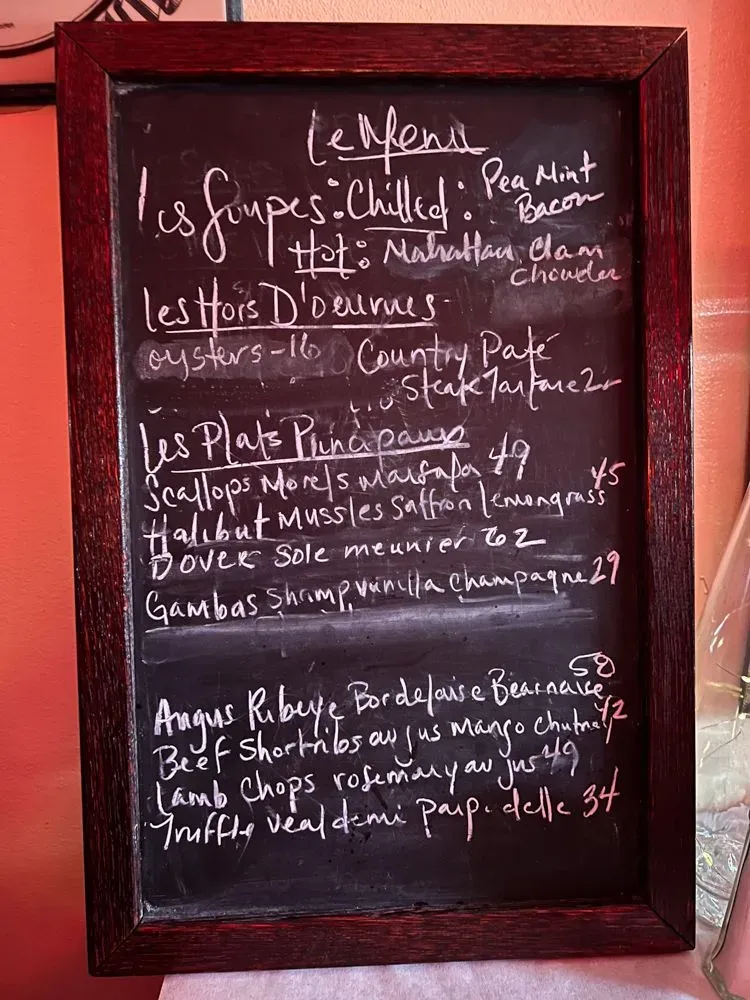 Le Menu
Les Soupes: Chilled: Pea Mint
Bacon
Hot: Mahattan Clam
Chowder
Les Hors D'oeuvres
oysters-16 Country Paté
Steak Tartare
Les Plats Principaux
Scallops Morels 49
Halibut Mussles Saffron lemongrass 45
Dover Sole meunier 62
Gambas Shrimp, vanilla champagne 29
Angus Ribeye Bordelaise Bearnaise 58
Beef Shortribs au jus mango chutney 42
Lamb Chops rosemary au jus 49
Truffle veal demi papp.delle 34